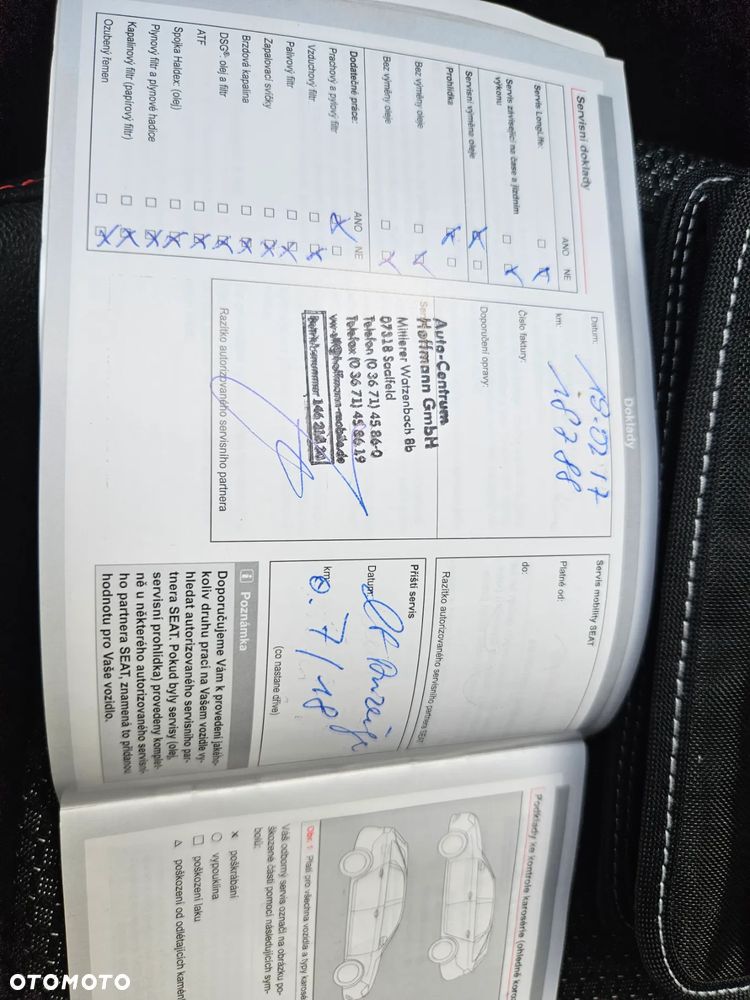 Doklady
Servisní doklady
ANO NE
Servis LongLife:
Servis závisející na čase a jízdním
výkonu
Servisní výměna oleje
Prohlídka
Bez výměny oleje
Bez výměny oleje
Dodatečné práce: ANO NE
Prachový a pylový filtr
Vzduchový filtr
Palivový filtr
Zapalovací svíčky
Brzdová kapalina
DSG®: olej a filtr
ATF
Spojka Haldex: (olej)
Plynový filtr a plynové hadice
Kapalinový filtr (papírový filtr)
Ozubený řemen
Datum: 19.02.17
km: 18788
Číslo faktury:
Doporučení opravy:
Auto-Centrum
Hoffmann GmbH
Mittlerer Watzenbach 8b
07318 Saalfeld
Telefon (0 36 71) 45 86-0
Telefax (0 36 71) 45 86 19
Razítko autorizovaného servisního partnera
Servis mobility SEAT
Platné od:
do:
Razítko autorizovaného servisního partnera SEAT
Příští servis
Datum:
km: o. 7/18
(co nastane dříve)
i Poznámka
Doporučujeme Vám k provedení jakého-
koliv druhu prací na Vašem vozidle vy-
hledat autorizovaného servisního par-
tnera SEAT. Pokud byly servisy (olej,
servisní prohlídka) provedeny komplet-
ně u některého autorizovaného servisní-
ho partnera SEAT, znamená to přidanou
hodnotu pro Vaše vozidlo.
Podklady ke kontrole karosérie (ohledně
Obr. 1 Platí pro všechna vozidla a typy
Váš odborný servis označí na obrázku po-
škozené části pomocí následujících sym-
bolů:
x poškrábání
○ vypouklina
□ poškození laku
△ poškození od odlétajících
OTOMOTO